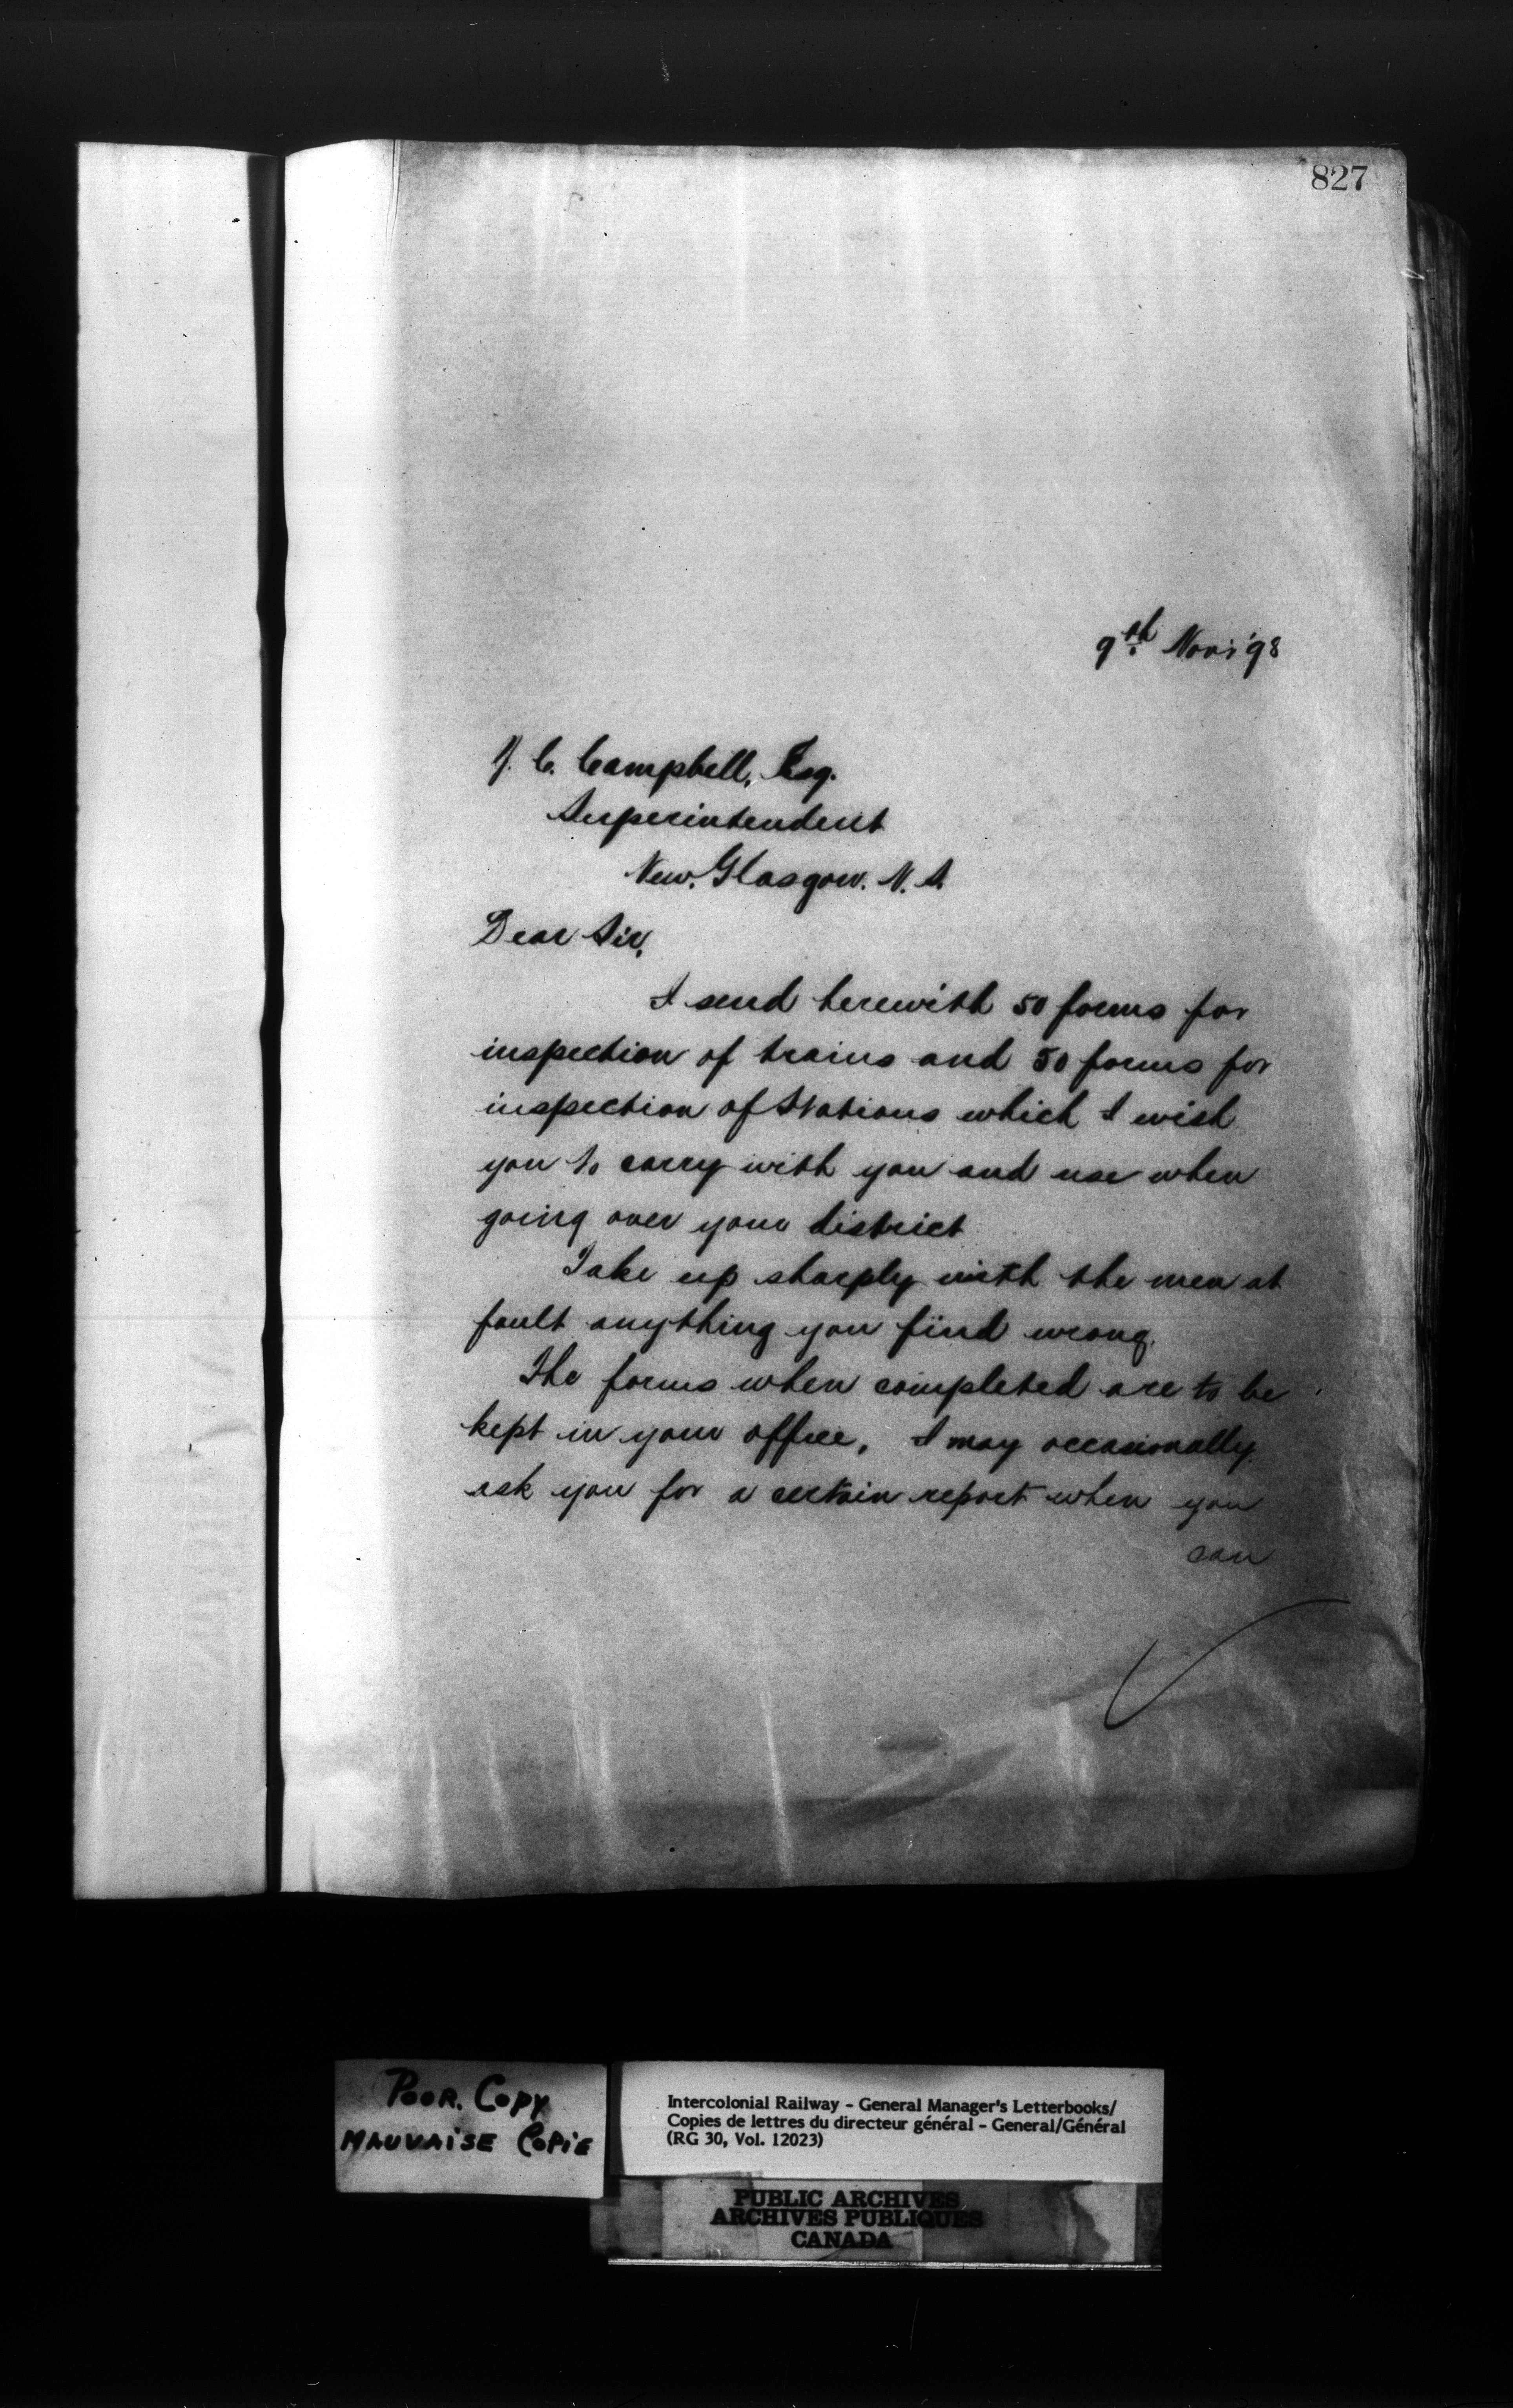 827
9th Nov '98
Y. C. Campbell, Esq.
Superintendent
New Glasgow. N. S.
Dear Sir,
I send herewith 50 forms for
inspection of trains and 50 forms for
inspection of Stations which I wish
you to carry with you and use when
going over your district
Take up sharply with the men at
fault anything you find wrong.
The forms when completed are to be
kept in your office, I may occasionally
ask you for a certain report when you
can
POOR COPY
MAUVAISE COPIE
Intercolonial Railway - General Manager's Letterbooks/
Copies de lettres du directeur général - General/Général
(RG 30, Vol. 12023)
PUBLIC ARCHIVES
ARCHIVES PUBLIQUES
CANADA